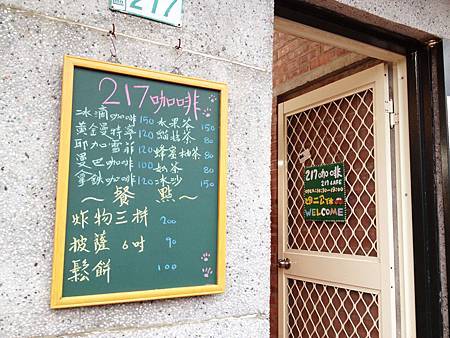 217
217咖啡
冰滴咖啡 150 水果茶 150
黃金曼特寧 120 貓菇茶 80
耶加雪菲 120 蜂蜜柚茶 80
曼巴咖啡 100 奶茶 80
拿鐵咖啡 120 冰沙 150
～餐點～
炸物三拼 200
披薩 6吋 90
鬆餅 100
217咖啡
217 CAFE
WELCOME